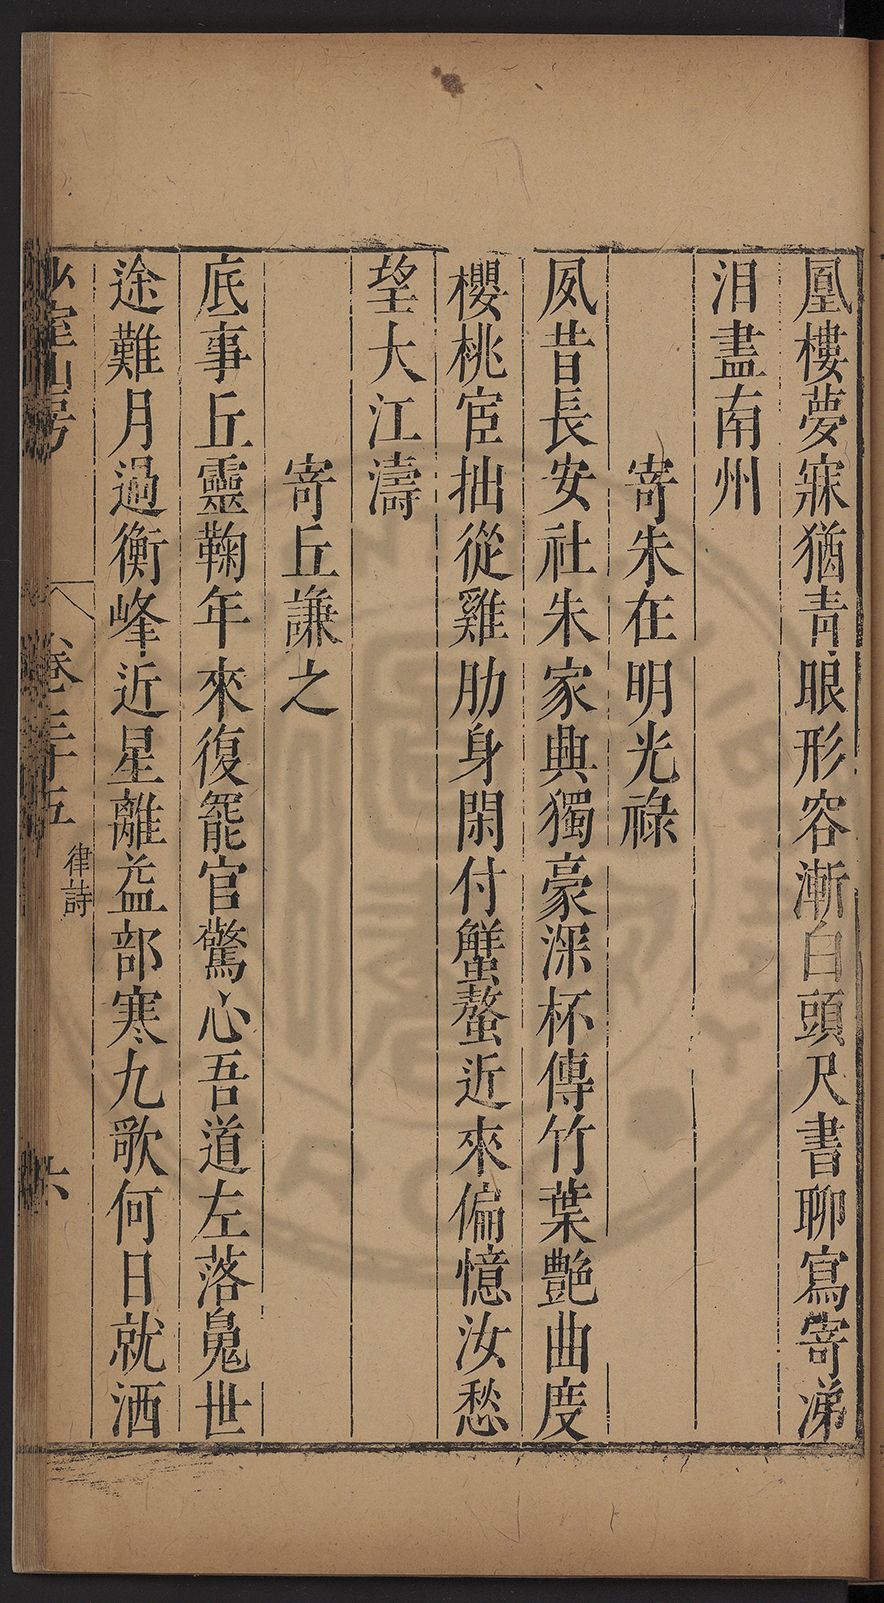 凰樓夢寐猶青眼形容漸白頭尺書聊寫寄涕
泪盡南州
寄朱在明光祿
夙昔長安社朱家興獨豪深杯傳竹葉艷曲度
櫻桃宦拙從雞肋身閑付蟹螯近來偏憶汝愁
望大江濤
寄丘謙之
底事丘靈鞠年來復罷官驚心吾道左落魄世
途難月過衡峰近星離益部寒九歌何日就洒
少室山房
卷三十五
律詩
六